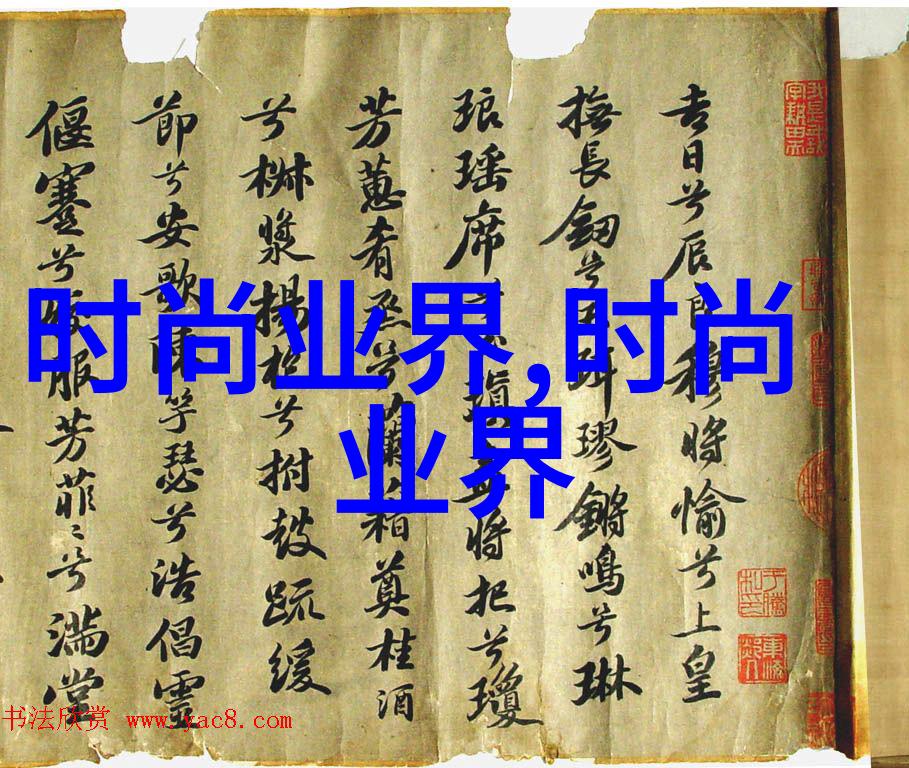 时尚业界,时尚
业界
吉日兮辰良穆將愉兮上皇
撫長劔兮玉珥璆鏘鳴兮琳
琅瑶席兮玉瑱盍將把兮瓊
芳蕙肴烝兮蘭藉奠桂酒
兮椒漿揚枹兮拊鼓疏緩
節兮安歌陳竽瑟兮浩倡靈
偃蹇兮姣服芳菲〻兮滿堂
书法欣赏 www.yac8.com